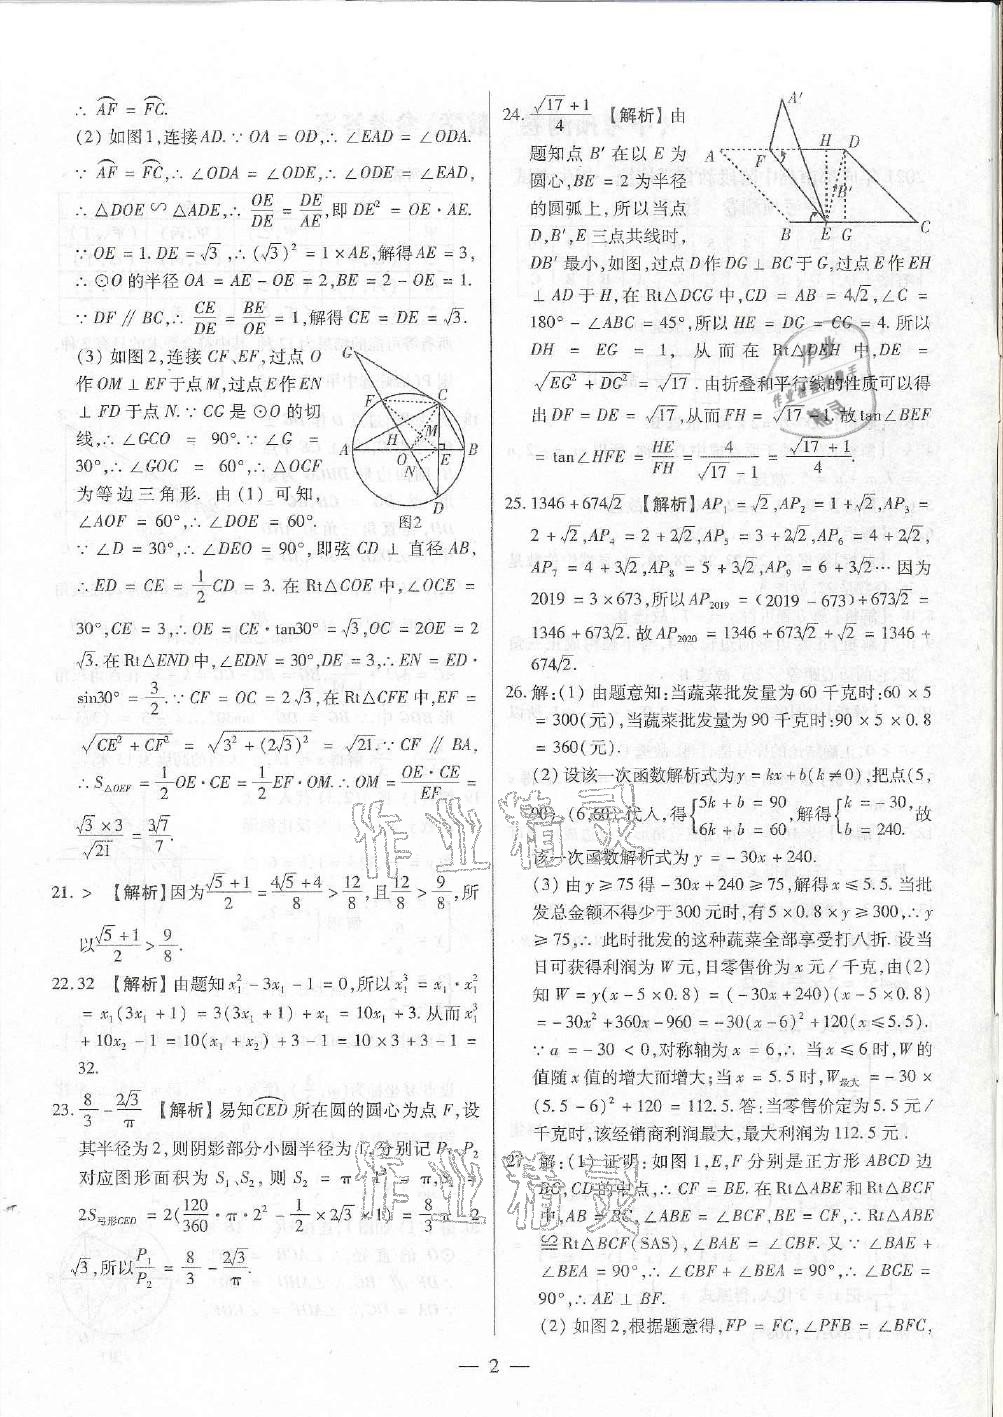 ∴ A͡F = F͡C.
(2) 如图1,连接AD.∵ OA = OD,∴ ∠EAD = ∠ODA.
∵ A͡F = F͡C,∴ ∠ODA = ∠ODE,∴ ∠ODE = ∠EAD,
∴ △DOE ∽ △ADE,∴ OE/DE = DE/AE,即DE² = OE·AE.
∵ OE = 1. DE = √3 ,∴ (√3)² = 1×AE,解得AE = 3,
∴ ⊙O 的半径 OA = AE − OE = 2,BE = 2 − OE = 1.
∵ DF ∥ BC,∴ CE/DE = BE/OE = 1,解得 CE = DE = √3.
(3) 如图2,连接 CF、EF,过点 O
作 OM ⊥ EF于点M,过点E作EN
⊥ FD于点N.∵ CG是⊙O的切
线,∴ ∠GCO = 90°.∵ ∠G =
30°,∴ ∠GOC = 60°,∴ △OCF
为等边三角形. 由 (1) 可知,
∠AOF = 60°,∴ ∠DOE = 60°.
∵ ∠D = 30°,∴ ∠DEO = 90°,即弦 CD ⊥ 直径 AB,
∴ ED = CE = 1/2 CD = 3. 在 Rt△COE 中,∠OCE =
30°,CE = 3,∴ OE = CE·tan30° = √3,OC = 2OE = 2
√3.在Rt△END中,∠EDN = 30°,DE = 3,∴ EN = ED·
sin30° = 3/2.∵ CF = OC = 2√3.在Rt△CFE中,EF =
√(CE² + CF²) = √(3² + (2√3)²) = √21.∵ CF ∥ BA,
∴ S△OEF = 1/2 OE·CE = 1/2 EF·OM.∴ OM = OE·CE/EF =
√3×3/√21 = 3√7/7.
G
F
C
M
A
H
O
E
B
N
D
图2
21. > 【解析】因为 (√5+1)/2 = (4√5+4)/8 > 12/8,且 12/8 > 9/8,所
以 (√5+1)/2 > 9/8.
22.32 【解析】由题知x₁² − 3x₁ − 1 = 0,所以x₁³ = x₁·x₁²
= x₁(3x₁ + 1) = 3(3x₁ + 1) + x₁ = 10x₁ + 3. 从而x₁³
+ 10x₂ − 1 = 10(x₁ + x₂) + 3 − 1 = 10×3 + 3 − 1 =
32.
23. 8/3 − 2√3/π 【解析】易知C͡ED所在圆的圆心为点 F,设
其半径为2,则阴影部分小圆半径为1. 分别记 P₁、P₂
对应图形面积为 S₁、S₂, 则 S₂ = π·1² = π,S₁ =
2S弓形CED = 2(120/360·π·2² − 1/2×2√3×1) = 8/3 π − 2
√3,所以 P₁/P₂ = 8/3 − 2√3/π.
24. (√17+1)/4 【解析】由
题知点 B′ 在以 E 为
圆心,BE = 2 为半径
的圆弧上,所以当点
D,B′,E三点共线时,
A′
A
F
H
D
B′
B
E
G
C
DB′ 最小,如图,过点D作DG ⊥ BC于G,过点E作EH
⊥ AD于H,在 Rt△DCG 中,CD = AB = 4√2,∠C =
180° − ∠ABC = 45°,所以 HE = DG = CG = 4. 所以
DH = EG = 1, 从而在 Rt△DEH 中,DE =
√(EG² + DG²) = √17 . 由折叠和平行线的性质可以得
出DF = DE = √17,从而FH = √17 − 1.故tan∠BEF
= tan∠HFE = HE/FH = 4/(√17−1) = (√17+1)/4.
25.1346+674√2 【解析】AP₁ = √2,AP₂ = 1+√2,AP₃ =
2 + √2,AP₄ = 2 + 2√2,AP₅ = 3 + 2√2,AP₆ = 4 + 2√2,
AP₇ = 4 + 3√2,AP₈ = 5 + 3√2,AP₉ = 6 + 3√2… 因为
2019 = 3×673,所以AP₂₀₁₉ = (2019−673)+673√2 =
1346+673√2.故AP₂₀₂₀ = 1346+673√2+√2 = 1346+
674√2.
26. 解:(1) 由题意知:当蔬菜批发量为 60 千克时:60 × 5
= 300(元),当蔬菜批发量为 90 千克时:90 × 5 × 0.8
= 360(元).
(2) 设该一次函数解析式为y = kx + b(k ≠ 0),把点(5,
90),(6,60)代入,得{5k + b = 90 6k + b = 60,解得{k = −30, b = 240.故
该一次函数解析式为y = −30x + 240.
(3) 由 y ≥ 75 得 −30x + 240 ≥ 75,解得 x ≤ 5.5. 当批
发总金额不得少于 300 元时,有 5×0.8×y ≥ 300,∴ y
≥ 75,∴ 此时批发的这种蔬菜全部享受打八折. 设当
日可获得利润为 W 元,日零售价为 x 元 / 千克,由 (2)
知 W = y(x − 5×0.8) = (−30x + 240)(x − 5×0.8)
= −30x² + 360x − 960 = −30(x − 6)² + 120(x ≤ 5.5).
∵ a = −30 < 0,对称轴为 x = 6,∴ 当 x ≤ 6 时,W 的
值随 x 值的增大而增大;当x = 5.5时,W最大 = −30×
(5.5−6)² + 120 = 112.5. 答:当零售价定为 5.5 元 /
千克时,该经销商利润最大,最大利润为 112.5 元 .
27. 解:(1) 证明:如图 1,E,F 分别是正方形 ABCD 边
BC,CD的中点,∴ CF = BE. 在 Rt△ABE 和 Rt△BCF
中,AB = BC,∠ABE = ∠BCF,BE = CF,∴ Rt△ABE
≌ Rt△BCF(SAS),∠BAE = ∠CBF. 又∵ ∠BAE +
∠BEA = 90°,∴ ∠CBF + ∠BEA = 90°,∴ ∠BGE =
90°,∴ AE ⊥ BF.
(2) 如图 2,根据题意得,FP = FC,∠PFB = ∠BFC,
— 2 —
作业精灵
作业精灵